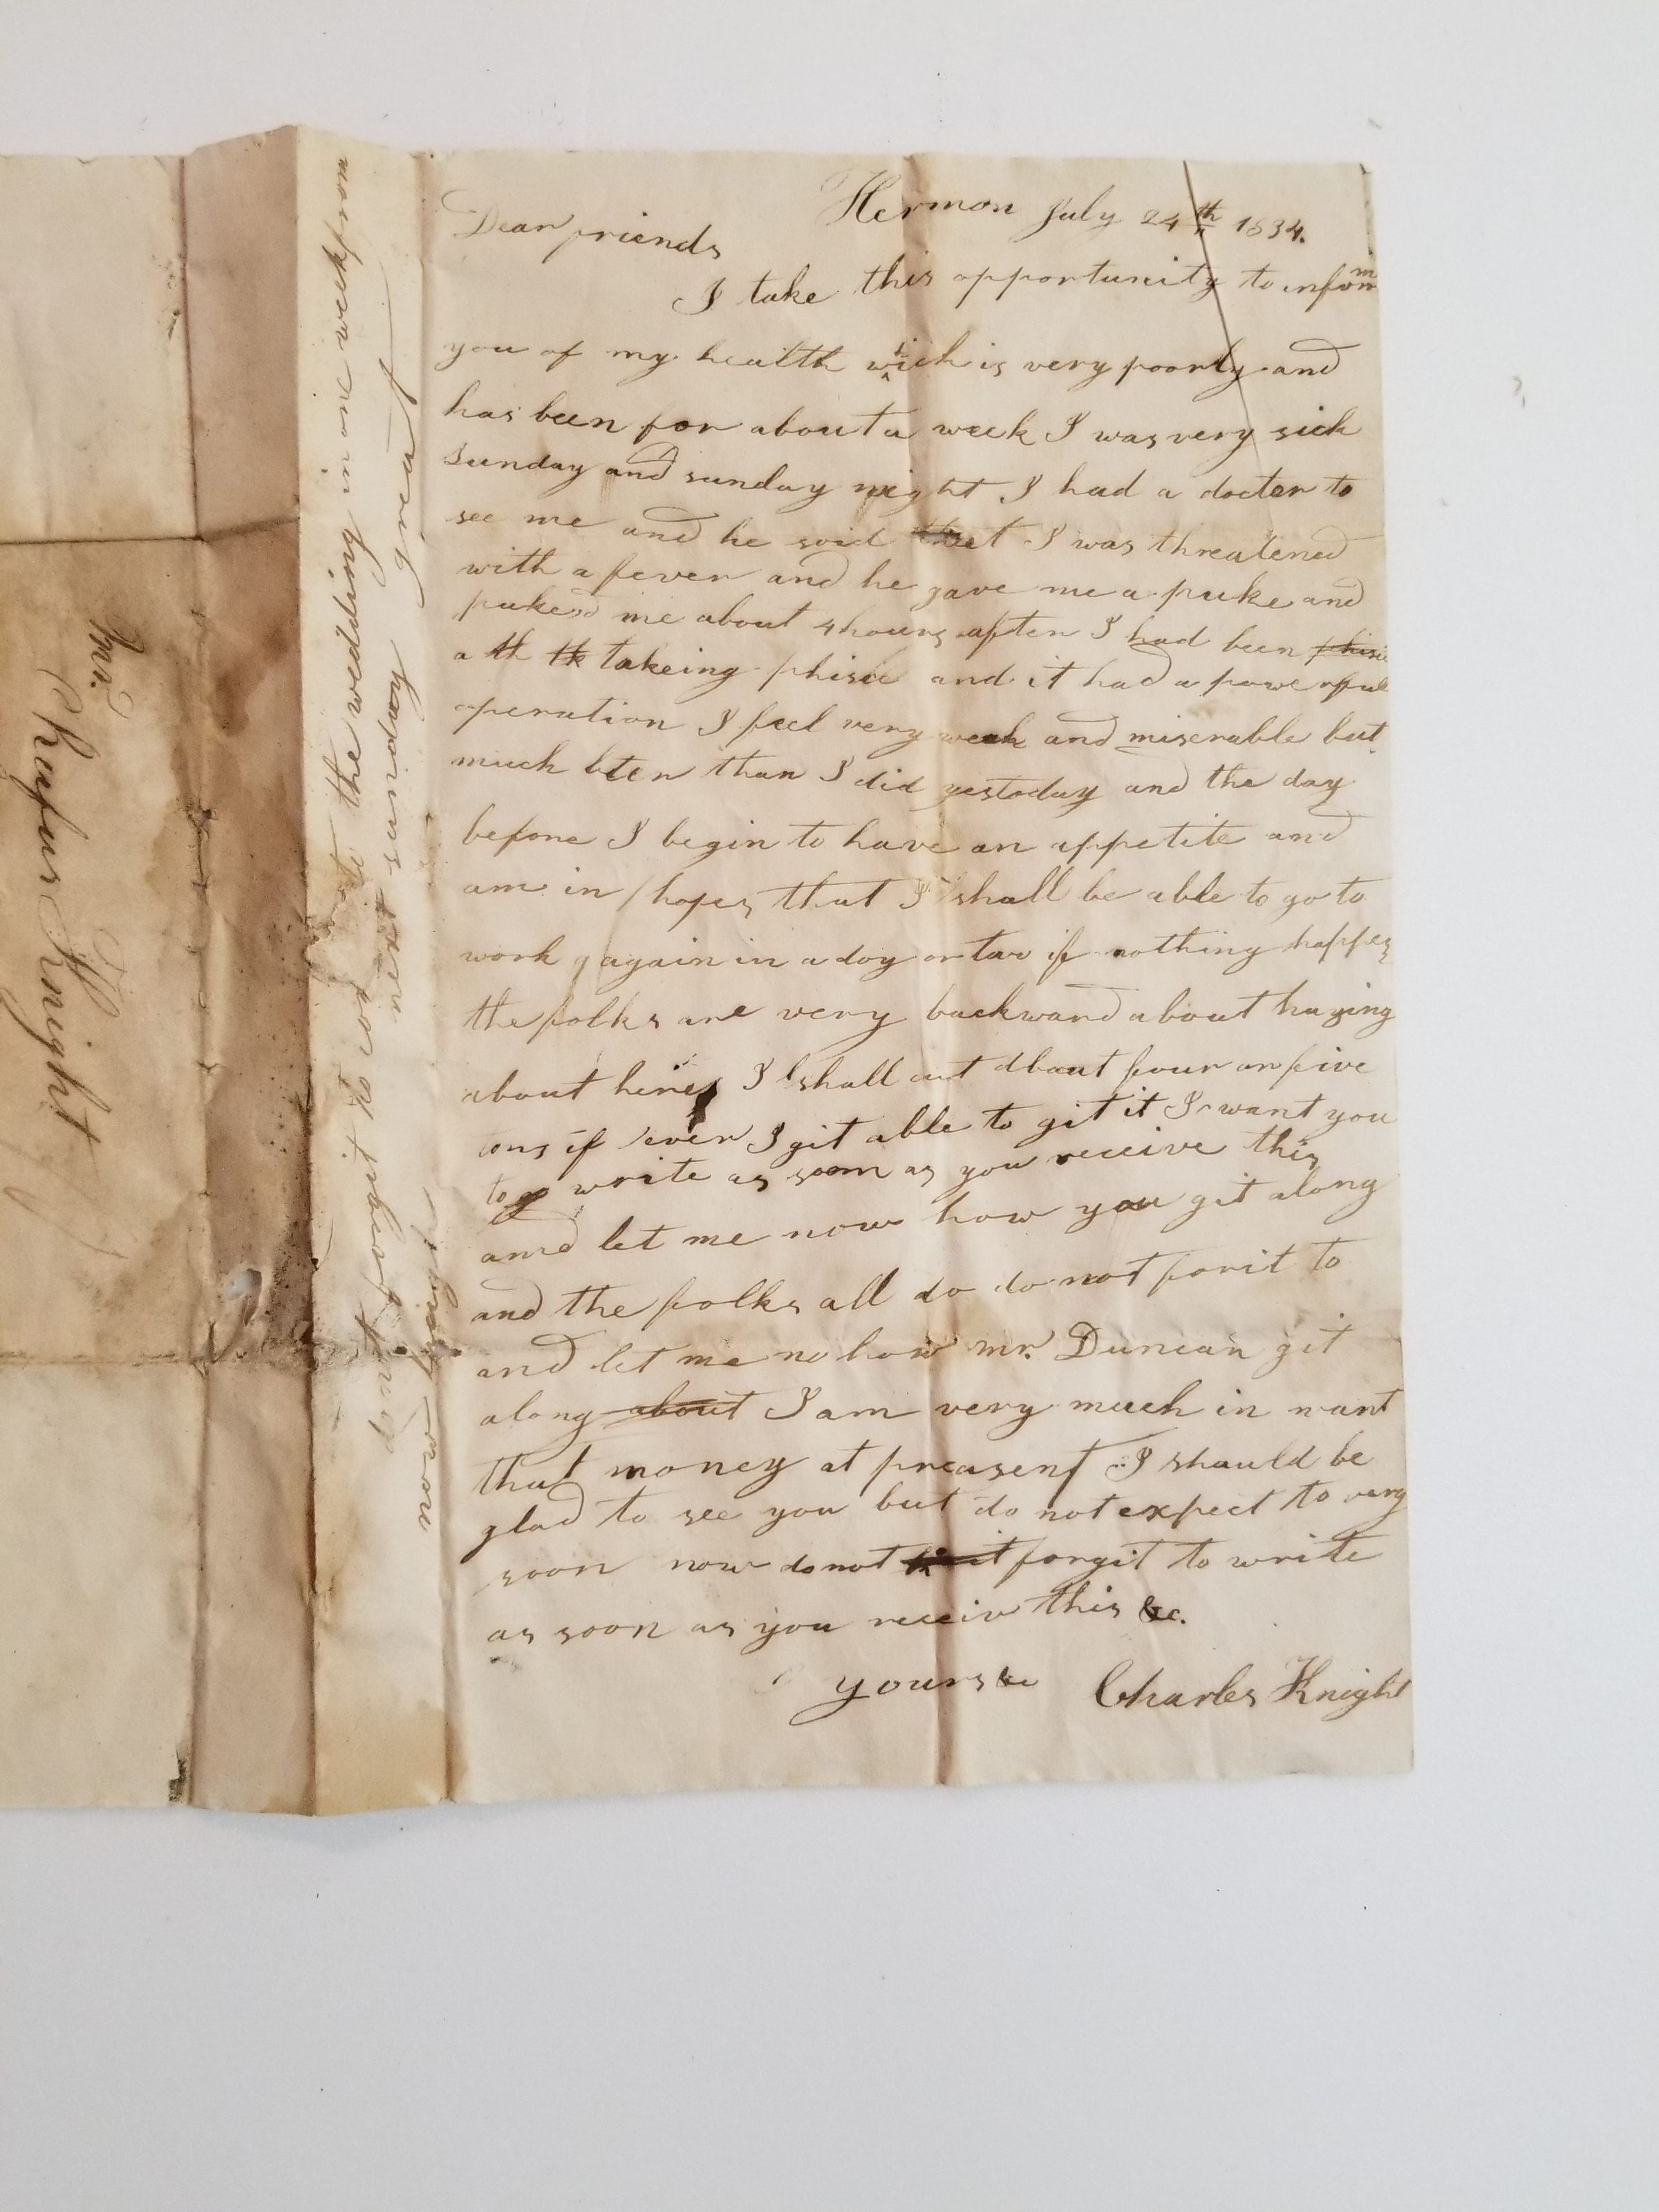 Hermon July 24th 1834.
Dear friends
I take this opportunity to inform
you of my health wich is very poorly and
has been for about a week I was very sick
sunday and sunday night I had a docter to
see me and he said that I was threatened
with a fever and he gave me a puke and
puked me about 4 hours after I had been phisic
a th th takeing phisic and it had a powerful
operation I feel very weak and miserable but
much bter than I did yestoday and the day
before I begin to have an appetite and
am in hopes that I shall be able to go to
work again in a day or two if nothing happes
the folks are very backward about haying
about here I shall cut about four or five
tons if ever I git able to git it I want you
to write as soon as you receive this
and let me now how you git along
and the folks all do do not forit to
and let me no how mr. Duncan git
along about I am very much in want
that money at preasent I should be
glad to see you but do not expect to very
soon now do not forgit to write
as soon as you receiv this &c.
yours &c Charles Knight
dont forgit to come to the wedding in one week from
next sunday great
Charles Knight
Mr.